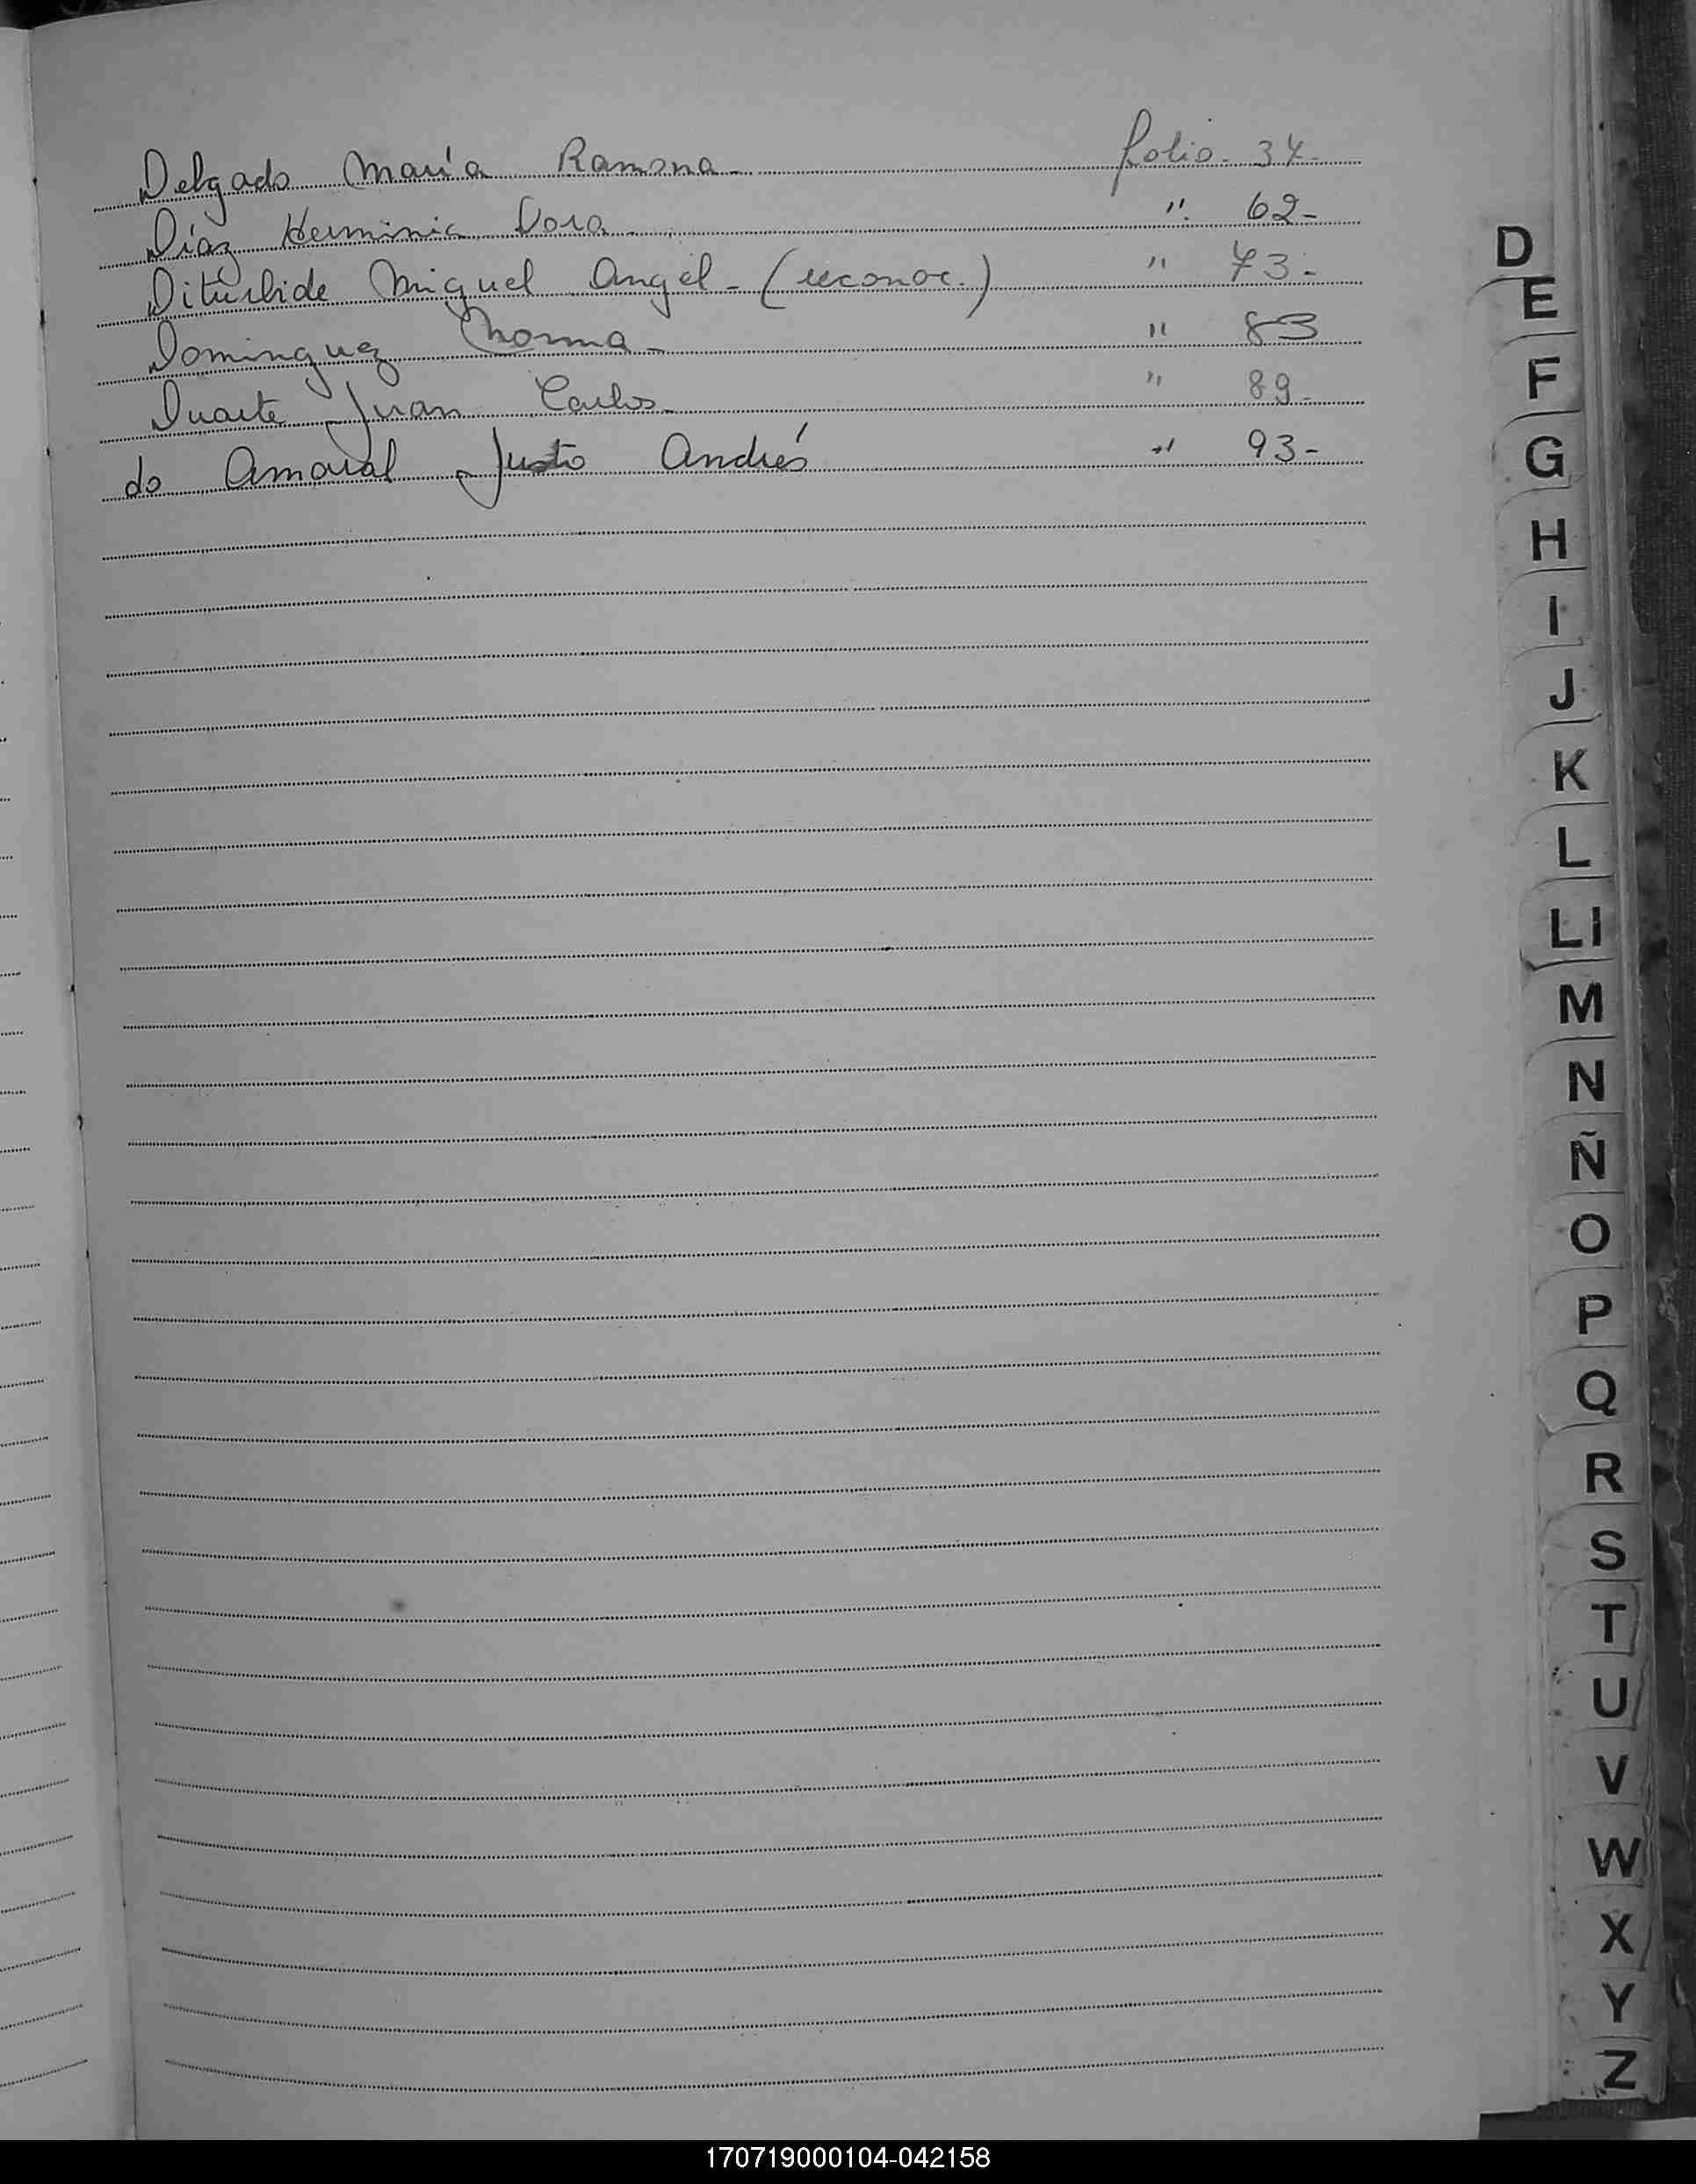 Delgado María Ramona - folio - 34 -
Díaz Herminia Dora - " 62 -
Diturbide Miguel Angel - (reconoc.) " 73 -
Dominguez Norma - " 83
Duarte Juan Carlos - " 89 -
do Amaral Justo Andrés " 93 -
D
E
F
G
H
I
J
K
L
Ll
M
N
Ñ
O
P
Q
R
S
T
U
V
W
X
Y
Z
170719000104-042158